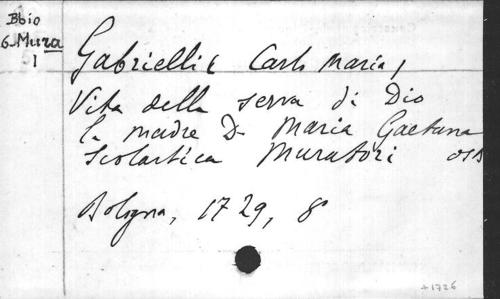 Bbio
6-Mura
1
Gabrielli Carlo Maria,
Vita della serva di Dio
la madre D. Maria Gaetana
Scolastica Muratori OSB
Bologna, 1729, 8°
+1726